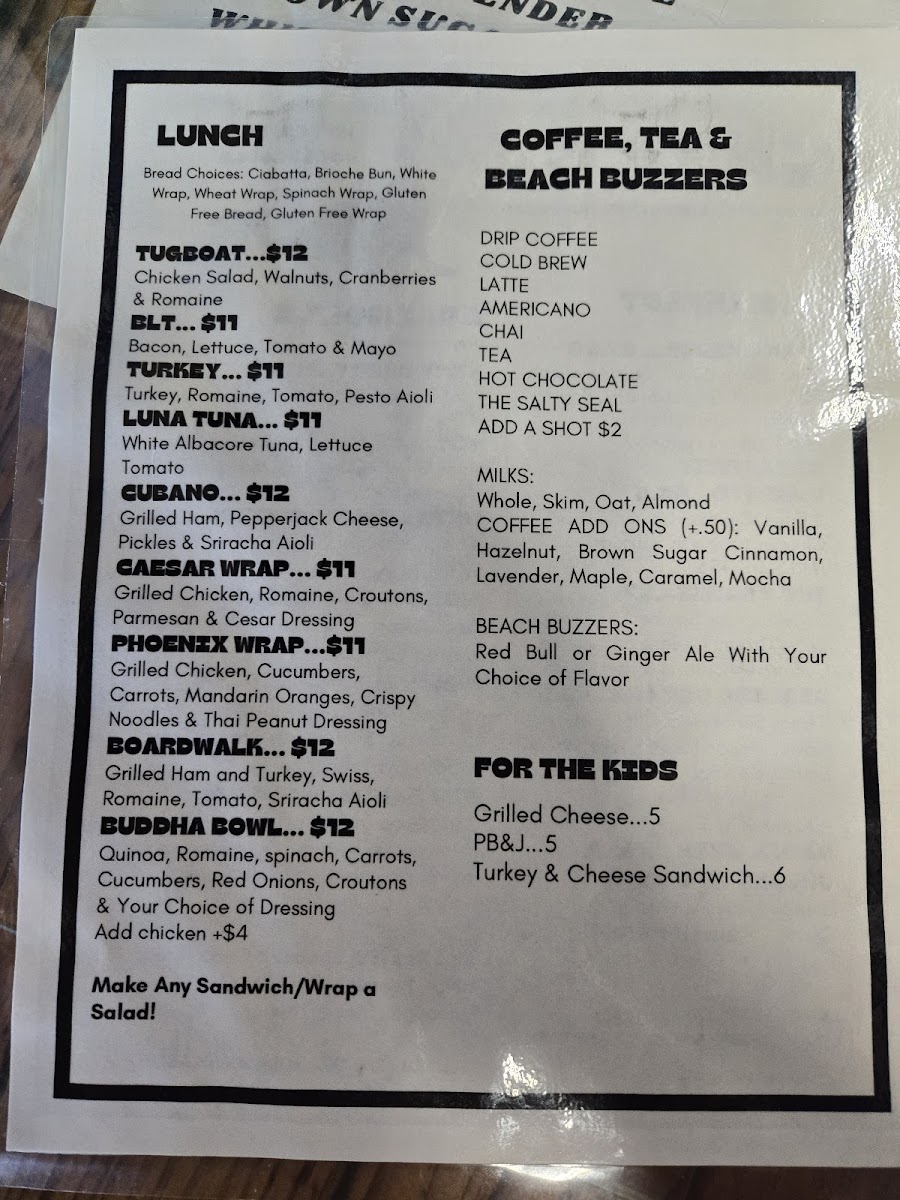 OWN SUG
ENDER
LUNCH
Bread Choices: Ciabatta, Brioche Bun, White
Wrap, Wheat Wrap, Spinach Wrap, Gluten
Free Bread, Gluten Free Wrap
TUGBOAT...$12
Chicken Salad, Walnuts, Cranberries
& Romaine
BLT... $11
Bacon, Lettuce, Tomato & Mayo
TURKEY... $11
Turkey, Romaine, Tomato, Pesto Aioli
LUNA TUNA... $11
White Albacore Tuna, Lettuce
Tomato
CUBANO... $12
Grilled Ham, Pepperjack Cheese,
Pickles & Sriracha Aioli
CAESAR WRAP... $11
Grilled Chicken, Romaine, Croutons,
Parmesan & Cesar Dressing
PHOENIX WRAP...$11
Grilled Chicken, Cucumbers,
Carrots, Mandarin Oranges, Crispy
Noodles & Thai Peanut Dressing
BOARDWALK... $12
Grilled Ham and Turkey, Swiss,
Romaine, Tomato, Sriracha Aioli
BUDDHA BOWL... $12
Quinoa, Romaine, spinach, Carrots,
Cucumbers, Red Onions, Croutons
& Your Choice of Dressing
Add chicken +$4
Make Any Sandwich/Wrap a
Salad!
COFFEE, TEA &
BEACH BUZZERS
DRIP COFFEE
COLD BREW
LATTE
AMERICANO
CHAI
TEA
HOT CHOCOLATE
THE SALTY SEAL
ADD A SHOT $2
MILKS:
Whole, Skim, Oat, Almond
COFFEE ADD ONS (+.50): Vanilla,
Hazelnut, Brown Sugar Cinnamon,
Lavender, Maple, Caramel, Mocha
BEACH BUZZERS:
Red Bull or Ginger Ale With Your
Choice of Flavor
FOR THE KIDS
Grilled Cheese...5
PB&J...5
Turkey & Cheese Sandwich...6